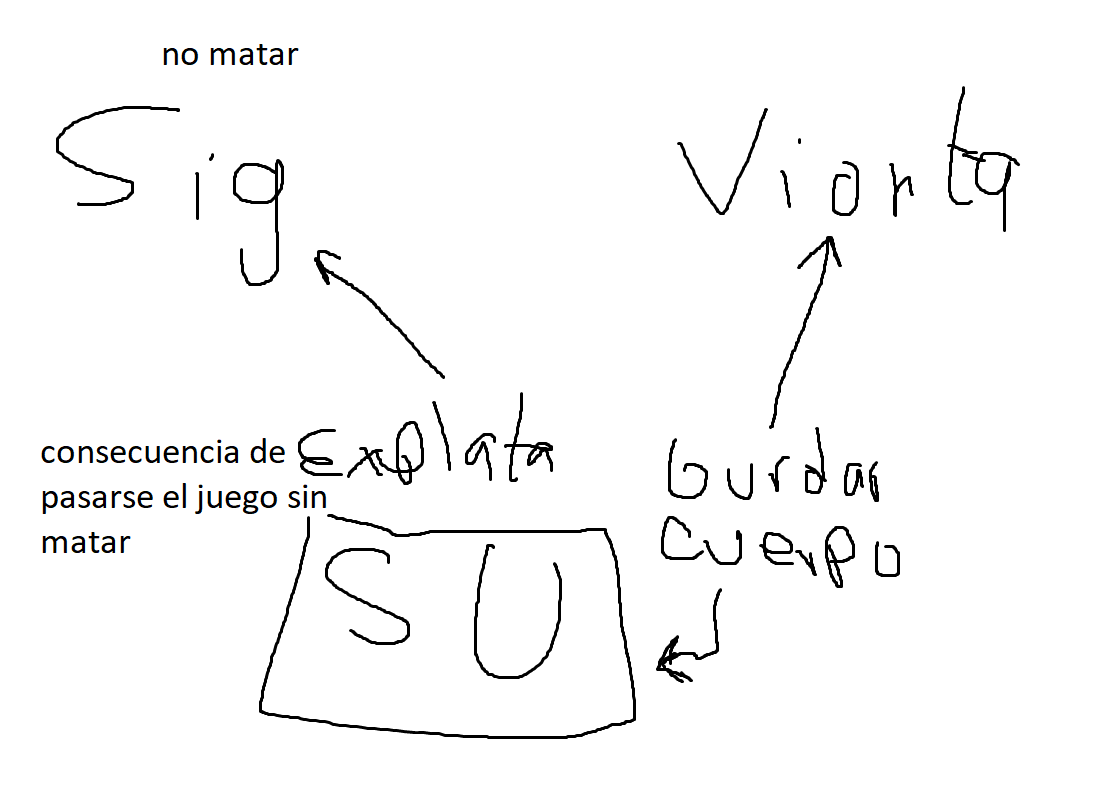 no matar
Sig
Viorta
consecuencia de
pasarse el juego sin
matar
Explata
Gurdar
cuerpo
SU